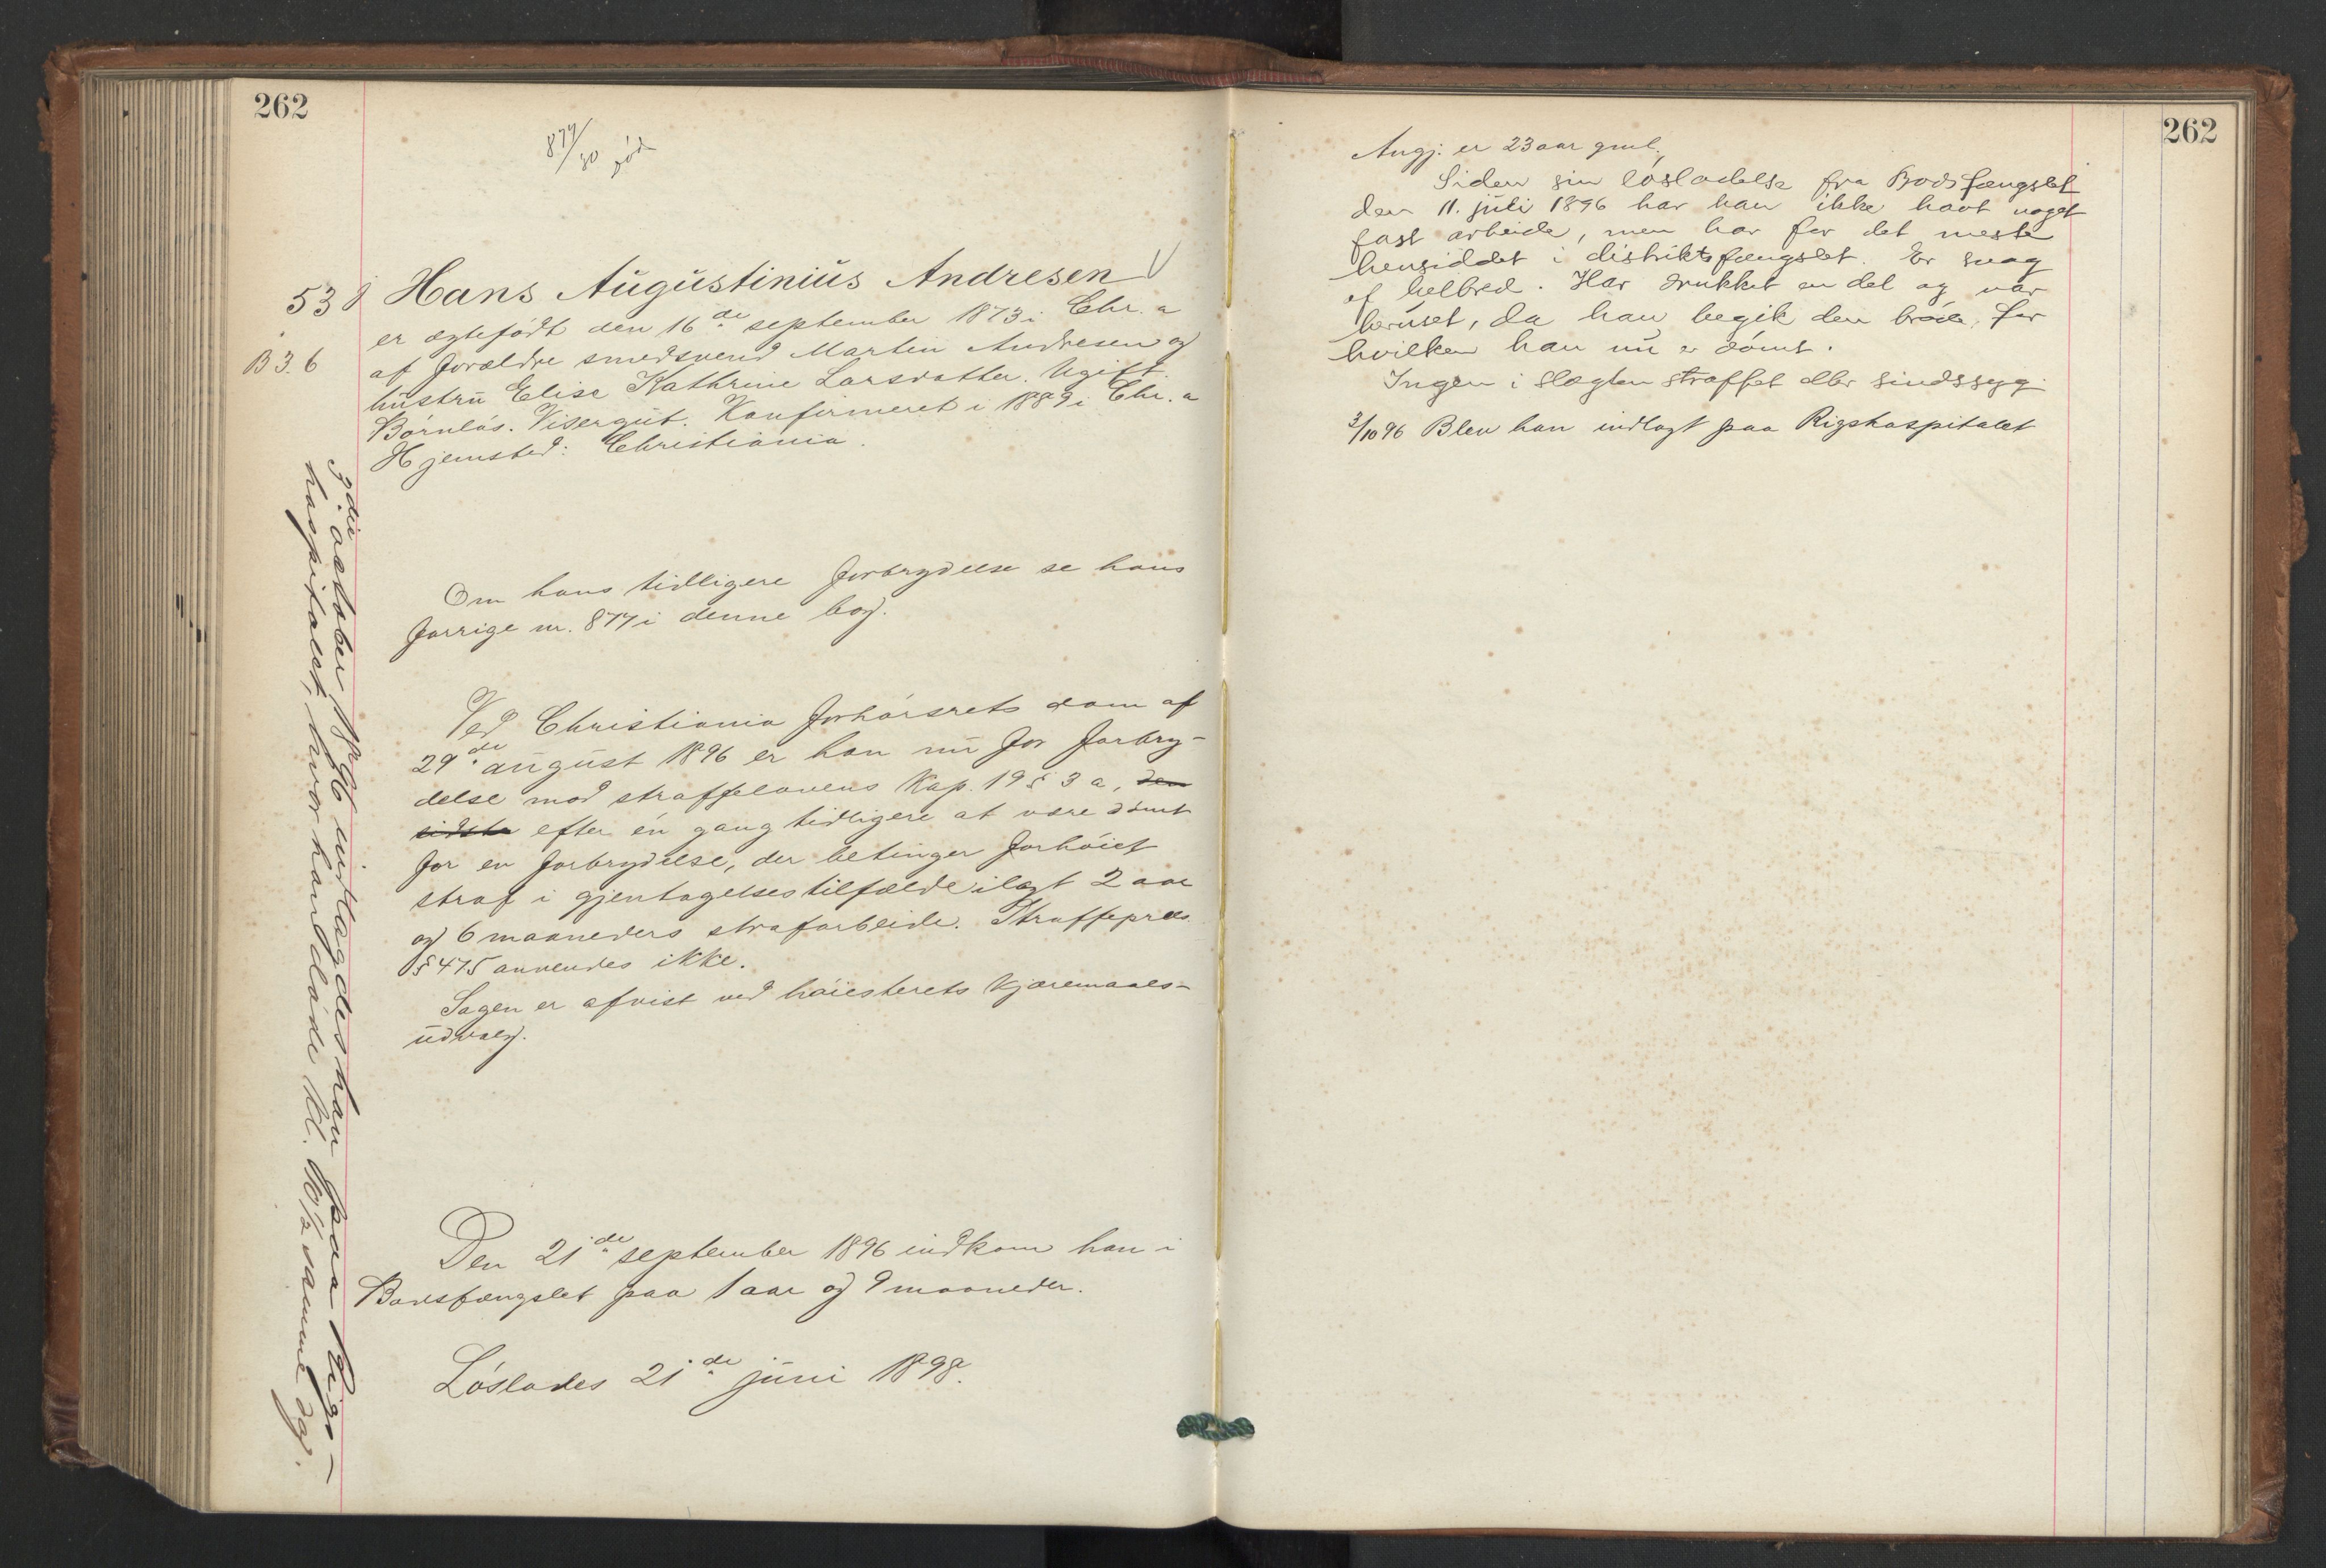 262
53
B 3. 6
Hans Augustinius Andresen
er ægtefødt den 16de september 1873 i Chr.a
af forældre smedsvend Martin Andresen og
hustru Elise Kathrine Larsdatter. Ugift.
Børnløs. Visergut. Konfirmeret i 1889 i Chr.a
Hjemsted: Christiania.
Om hans tidligere forbrydelse se hans
forrige nr. 877 i denne bog.
Ved Christiania forhørsrets dom af
29de august 1896 er han nu for forbry-
delse mod straffelovens Kap. 19 § 3 a, den
sidste efter én gang tidligere at være dømt
for en forbrydelse, der betinger forhøiet
straf i gjentagelsestilfælde ilagt 2 aar
og 6 maaneders strafarbeide. Straffepræs
§ 475 anvendes ikke.
Sagen er afvist ved høiesterets kjæremaals-
udvalg.
Den 21de september 1896 indkom han i
Bodsfængslet paa 1 aar og 9 maaneder.
Løslades 21de juni 1898.
3die october 1896 indlagdes han paa Rigs-
hospitalet, hvor han døde kl. 10 1/2 samme dag.
262
Angj. er 23 aar gml.
Siden sin løsladelse fra Bodsfængslet
den 11. juli 1896 har han ikke havt noget
fast arbeide, men har for det meste
hensiddet i distriktsfængslet. Er svag
af helbred. Har drukket en del og var
beruset, da han begik den brøde, for
hvilken han nu er dømt.
Ingen i slægten straffet eller sindssyg.
3/10 96 Blev han indlagt paa Rigshospitalet